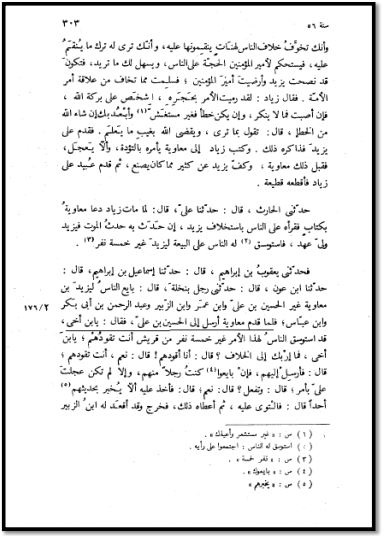 سنة ٥٦
٣٠٣
وأنك تخوَّفُ خلاف الناس لهَنَات ينقِمونها عليه، وأنَّك ترى له ترك ما يُنقَمُ
عليه، فيستحكم لأمير المؤمنين الحجَّة على الناس، ويسهل لك ما تريد، فتكون
قد نصحت يزيد وأرضيتَ أميرَ المؤمنين؛ فسلِمتَ مما تخاف من علاقة أمر
الأمّة. فقال زياد: لقد رميتَ الأمر بحَجَره، اشخَصْ على بركة الله،
فإن أصبتَ فما لا ينكر، وإن يكن خطأ فغير مستغَشّ(١) وأبعُد بك إن شاء الله
من الخطإ، قال: تقول بما ترى، ويقضى الله بغيبِ ما يَعلَم. فقدم على
يزيدَ فذاكره ذلك. وكتب زياد إلى معاوية يأمره بالتُؤدة، وألّا يَعجَل،
فقبل ذلك معاوية، وكفّ يزيد عن كثير مما كان يصنع، ثم قدم عُبيد على
زياد فأقطعه قطيعة.
حدّثنى الحارث، قال: حدّثنا علىّ، قال: لما مات زياد دعا معاويةُ
بكتاب فقرأه على الناس باستخلاف يزيد، إن حدَث به حدثُ الموت فيزيد
ولىّ عهد، فاستوسق(٢) له الناس على البيعة ليزيدَ غير خمسة نفر(٣).
فحدّثنى يعقوبُ بن إبراهيم، قال: حدّثنا إسماعيل بن إبراهيم، قال:
حدّثنا ابن عون، قال: حدّثنى رجل بنخلةَ، قال: بايع الناسُ ليزيدَ بن
معاوية غير الحسين بن علىّ وابن عمر وابن الزّبير وعبد الرحمن بن أبى بكر
١٧٦/٢
وابن عبّاس؛ فلما قدم معاوية أرسل إلى الحسين بن علىّ، فقال: يابن أخى،
قد استوسق الناسُ لهذا الأمر غير خمسة نفر من قريش أنت تقودُهُم؛ يابن
أخى، فما إرْبك إلى الخلاف؟ قال: أنا أقودهم! قال: نعم، أنت تقودهم؛
قال: فأرسِلْ إليهم، فإن بايعوا(٤) كنتُ رجلاً منهم، وإلا لم تكن عجلتَ
علىّ بأمر؛ قال: وتفعل؟ قال: نعم؛ قال: فأخذ عليه ألّا يُخبر بحديثهم(٥)
أحداً قال: فالتوى عليه، ثم أعطاه ذلك، فخرج وقد أقعَد له ابنُ الزبير
(١) س: «غير مستشعر وأعيذك».
(٢) استوسق له الناس: اجتمعوا على رأيه.
(٣) س: «نفر خمسة».
(٤) س: «بايعوك».
(٥) س: «يخبرهم»